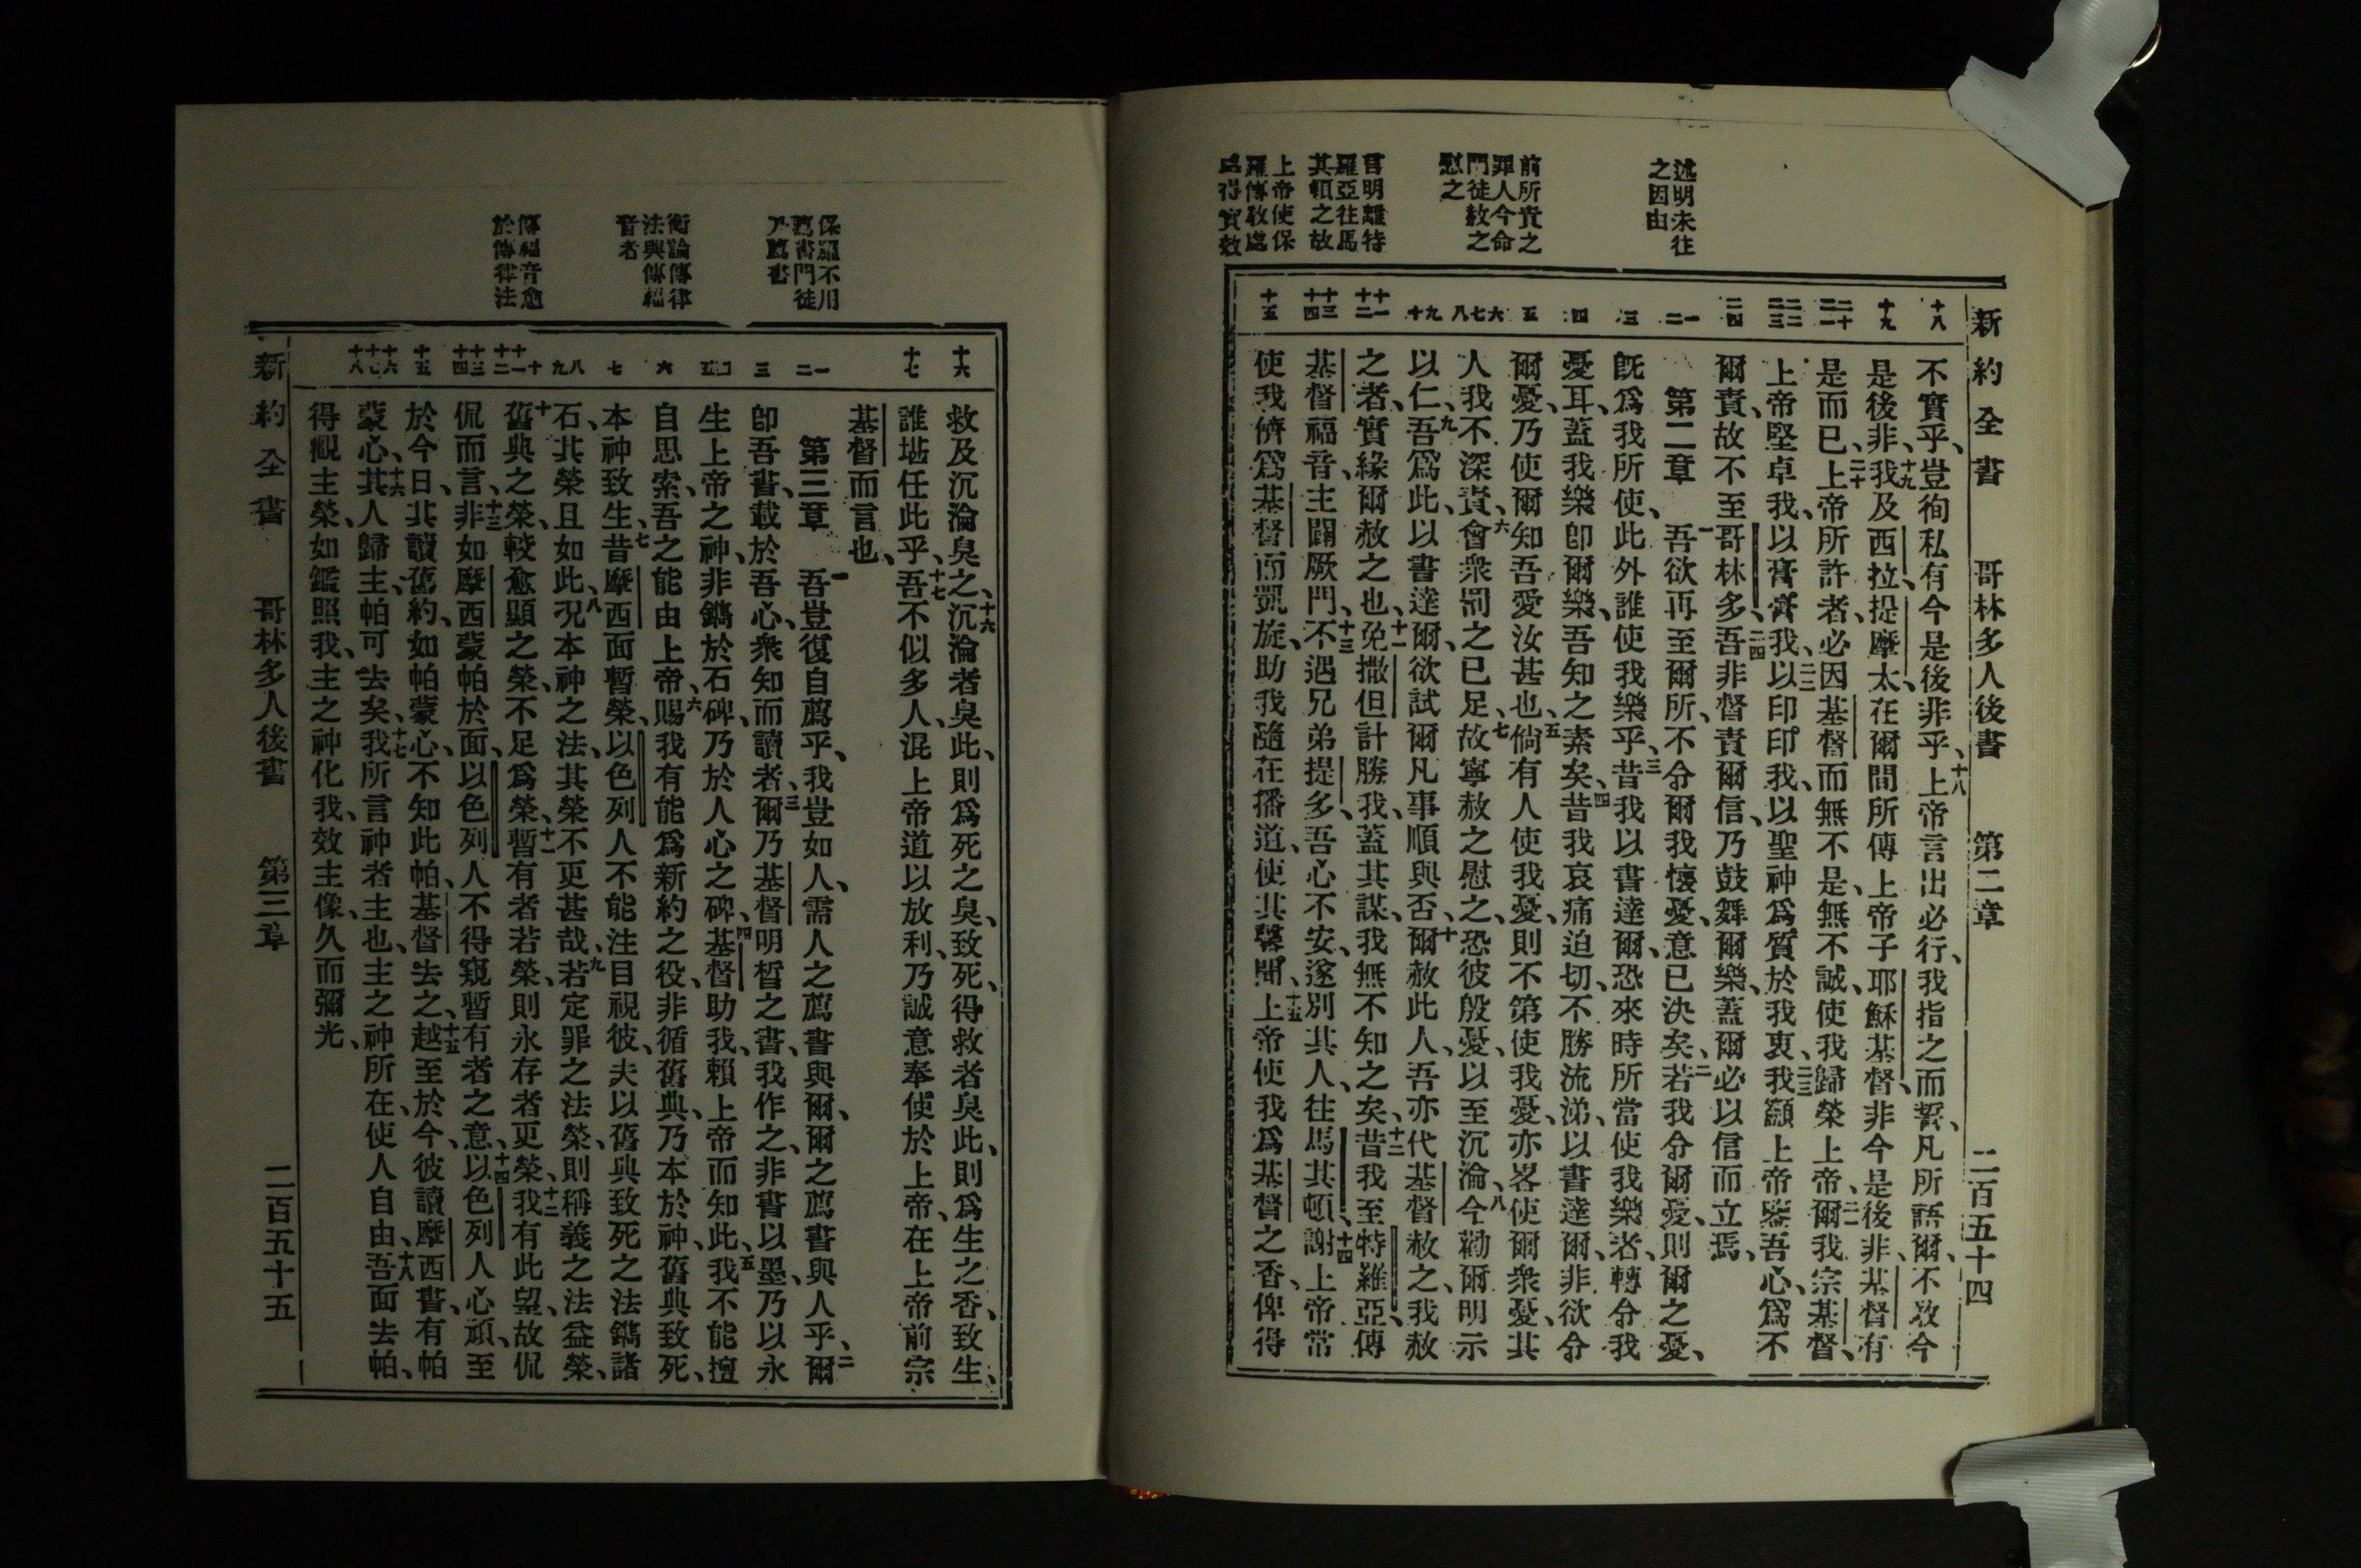 新約全書 哥林多人後書 第二章 二百五十四
述明未往
之因由
前所責之
罪人今命
門徒赦之
慰之
言明離特
羅亞往馬
其頓之故
上帝使保
羅傳教處
具得實效
十八
十九
二十
二一
二二
二三
二四
一
二
三
四
五
六
七
八
九
十
十一
十二
十三
十四
十五
不實乎、豈徇私有今是後非乎、十八上帝言出必行、我指之而誓、凡所語爾、不敢今
是後非、十九我及西拉、提摩太、在爾間所傳上帝子耶穌基督、非今是後非、基督有
是而已、二十上帝所許者、必因基督而無不是、無不誠、使我歸榮上帝、二一爾我宗基督、
上帝堅卓我、以膏膏我、二二以印印我、以聖神爲質於我衷、二三我籲上帝鑒吾心、爲不
爾責、故不至哥林多、二四吾非督責爾信、乃鼓舞爾樂、蓋爾必以信而立焉、
第二章 一吾欲再至爾所、不令爾我懷憂、意已決矣、二若我令爾憂、則爾之憂、
旣爲我所使、此外誰使我樂乎、三昔我以書達爾、恐來時所當使我樂者、轉令我
憂耳、蓋我樂卽爾樂、吾知之素矣、四昔我哀痛迫切、不勝流涕、以書達爾、非欲令
爾憂、乃使爾知吾愛汝甚也、五倘有人使我憂、則不第使我憂、亦畧使爾衆憂、其
人我不深責、六會衆罰之已足、七故寧赦之慰之、恐彼殷憂、以至沉淪、八今勸爾明示
以仁、九吾爲此、以書達爾、欲試爾凡事順與否、十爾赦此人、吾亦代基督赦之、我赦
之者、實緣爾赦之也、十一免撒但計勝我、蓋其謀、我無不知之矣、十二昔我至特羅亞、傳
基督福音、主闢厥門、十三不遇兄弟提多、吾心不安、遂別其人、往馬其頓、十四謝上帝常
使我儕爲基督而凱旋、助我隨在播道、使其馨聞、十五上帝使我爲基督之香、俾得
保羅不用
薦書門徒
乃薦書
衡論傳律
法與傳福
音者
傳福音愈
於傳律法
十六
十七
一
二
三
四
五
六
七
八
九
十
十一
十二
十三
十四
十五
十六
十七
十八
救及沉淪臭之、十六沉淪者臭此、則爲死之臭、致死、得救者臭此、則爲生之香、致生、
誰堪任此乎、十七吾不似多人、混上帝道以放利、乃誠意奉使於上帝、在上帝前宗
基督而言也、
第三章 一吾豈復自薦乎、我豈如人、需人之薦書與爾、爾之薦書與人乎、二爾
卽吾書、載於吾心、衆知而讀者、三爾乃基督明晳之書、我作之、非書以墨、乃以永
生上帝之神、非鐫於石碑、乃於人心之碑、四基督助我、賴上帝而知此、五我不能擅
自思索、吾之能由上帝、六賜我有能爲新約之役、非循舊典、乃本於神、舊典致死、
本神致生、七昔摩西面暫榮、以色列人不能注目視彼、夫以舊典致死之法鐫諸
石、其榮且如此、八况本神之法、其榮不更甚哉、九若定罪之法榮、則稱義之法益榮、
十舊典之榮、較愈顯之榮、不足爲榮、十一暫有者若榮、則永存者更榮、十二我有此望、故侃
侃而言、十三非如摩西蒙帕於面、以色列人不得窺暫有者之意、十四以色列人心頑、至
於今日、其讀舊約、如帕蒙心、不知此帕、基督去之、十五越至於今、彼讀摩西書、有帕
蒙心、十六其人歸主、帕可去矣、十七我所言神者主也、主之神所在、使人自由、十八吾面去帕、
得觀主榮、如鑑照我、主之神化我、效主像、久而彌光、
新約全書 哥林多人後書 第三章 二百五十五